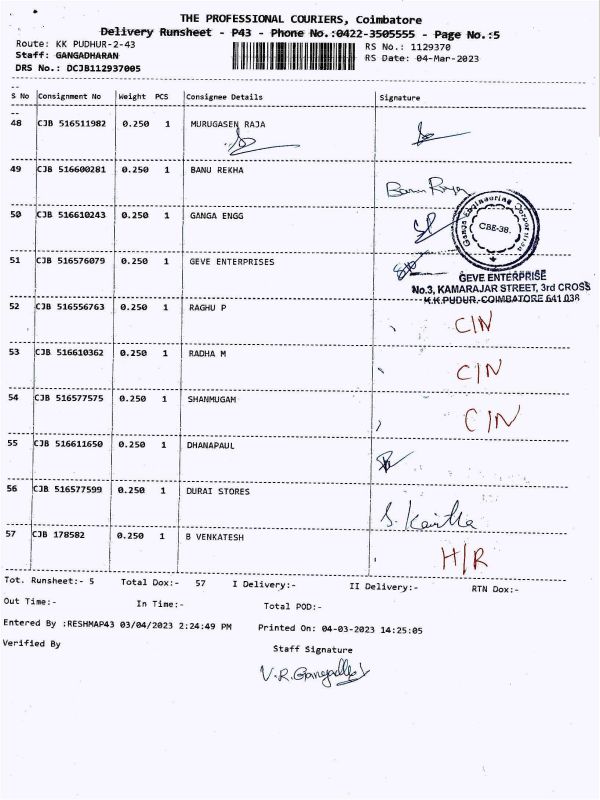 THE PROFESSIONAL COURIERS, Coimbatore
Delivery Runsheet - P43 - Phone No.:0422-3505555 - Page No.:5
Route: KK PUDHUR-2-43
RS No.: 1129370
Staff: GANGADHARAN
RS Date: 04-Mar-2023
DRS No.: DCJB112937005
S No Consignment No Weight PCS Consignee Details Signature
48 CJB 516511982 0.250 1 MURUGASEN RAJA
49 CJB 516600281 0.250 1 BANU REKHA
50 CJB 516610243 0.250 1 GANGA ENGG
CBE-38.
51 CJB 516576079 0.250 1 GEVE ENTERPRISES
GEVE ENTERPRISE
No.3, KAMARAJAR STREET, 3rd CROSS
K.K.PUDUR, COIMBATORE 641 038
52 CJB 516556763 0.250 1 RAGHU P C/N
53 CJB 516610362 0.250 1 RADHA M C/N
54 CJB 516577575 0.250 1 SHANMUGAM C/N
55 CJB 516611650 0.250 1 DHANAPAUL
56 CJB 516577599 0.250 1 DURAI STORES
57 CJB 178582 0.250 1 B VENKATESH H/R
Tot. Runsheet:- 5 Total Dox:- 57 I Delivery:- II Delivery:- RTN Dox:-
Out Time:- In Time:- Total POD:-
Entered By :RESHMAP43 03/04/2023 2:24:49 PM Printed On: 04-03-2023 14:25:05
Verified By
Staff Signature